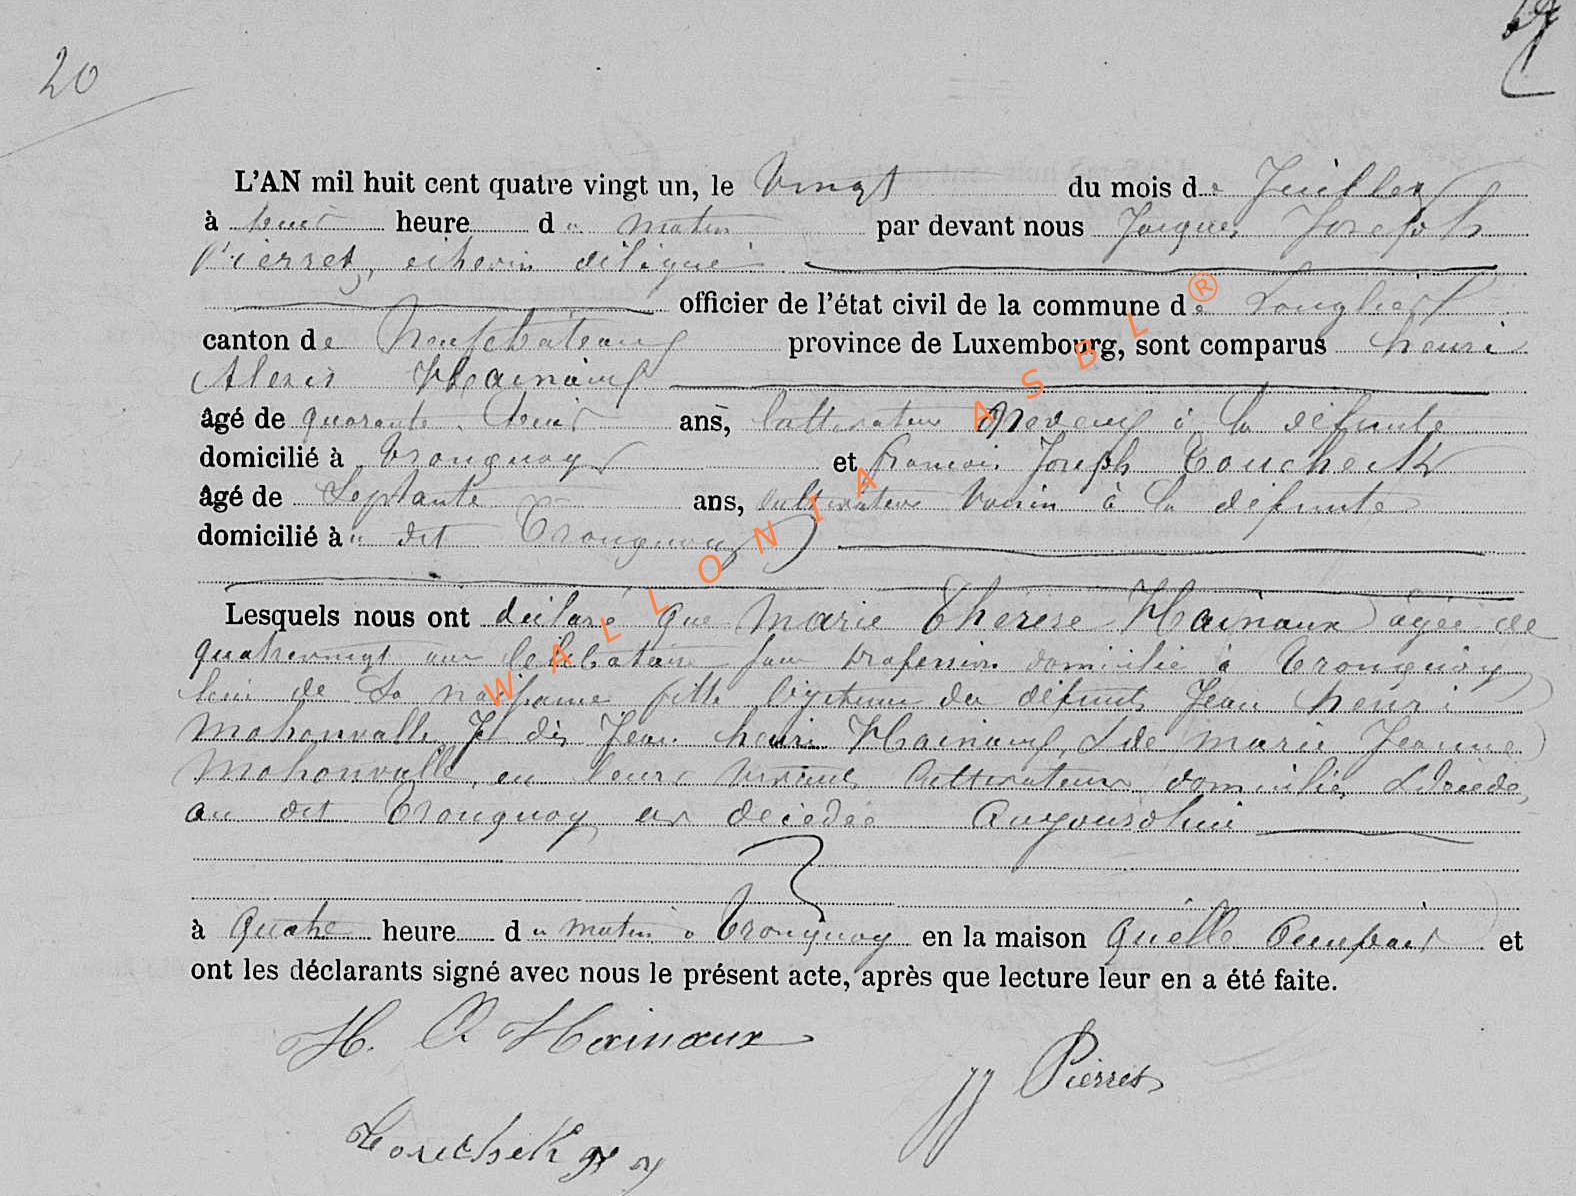 20
L'AN mil huit cent quatre vingt un, le vingt du mois de Juillet
à huit heure du matin par devant nous Jacques Joseph
Pierret, échevin délégué
officier de l'état civil de la commune de Longlier
canton de Neufchateau province de Luxembourg, sont comparus henri
Alexis Hainaux
âgé de quarante huit ans, cultivateur Neveux à la défunte
domicilié à Tronquoy et francois Joseph Toucheck
âgé de Septante ans, cultivateur voisin à la défunte
domicilié au dit Tronquoy
Lesquels nous ont déclaré que Marie Thérèse Hainaux âgée de
quatrevingt un célibataire sans profession domicilié à Tronquoy
lieu de Sa naissance fille légitime des défunts Jean henri
Mohonvalle dis Jean henri Hainaux, & de marie Jeanne
Mohonvalle en leurs vivant Cultivateurs domiciliés & décédés
au dit Tronquoy est décédée Aujourd'hui
à quatre heure du matin à Tronquoy en la maison quelle Occupait et
ont les déclarants signé avec nous le présent acte, après que lecture leur en a été faite.
H. A Hainaux
JJ Pierret
Touchek
WALLONIA ASBL ®